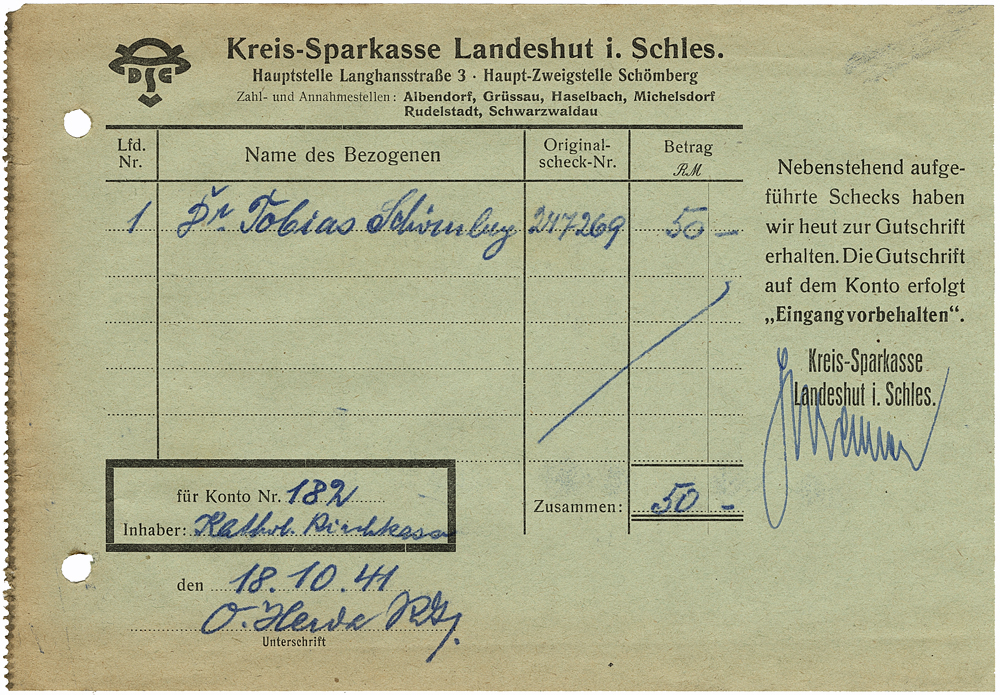 DSG
Kreis-Sparkasse Landeshut i. Schles.
Hauptstelle Langhansstraße 3 · Haupt-Zweigstelle Schömberg
Zahl- und Annahmestellen: Albendorf, Grüssau, Haselbach, Michelsdorf
Rudelstadt, Schwarzwaldau
Lfd. Nr.
Name des Bezogenen
Original-
scheck-Nr.
Betrag
RM
1 Dr. Tobias Schömberg 247269 50 –
Nebenstehend aufge-
führte Schecks haben
wir heut zur Gutschrift
erhalten. Die Gutschrift
auf dem Konto erfolgt
„Eingang vorbehalten“.
Kreis-Sparkasse
Landeshut i. Schles.
für Konto Nr. 182
Inhaber: Kathol. Kirchkasse
Zusammen: 50 –
den 18.10.41
O. Herda
Unterschrift